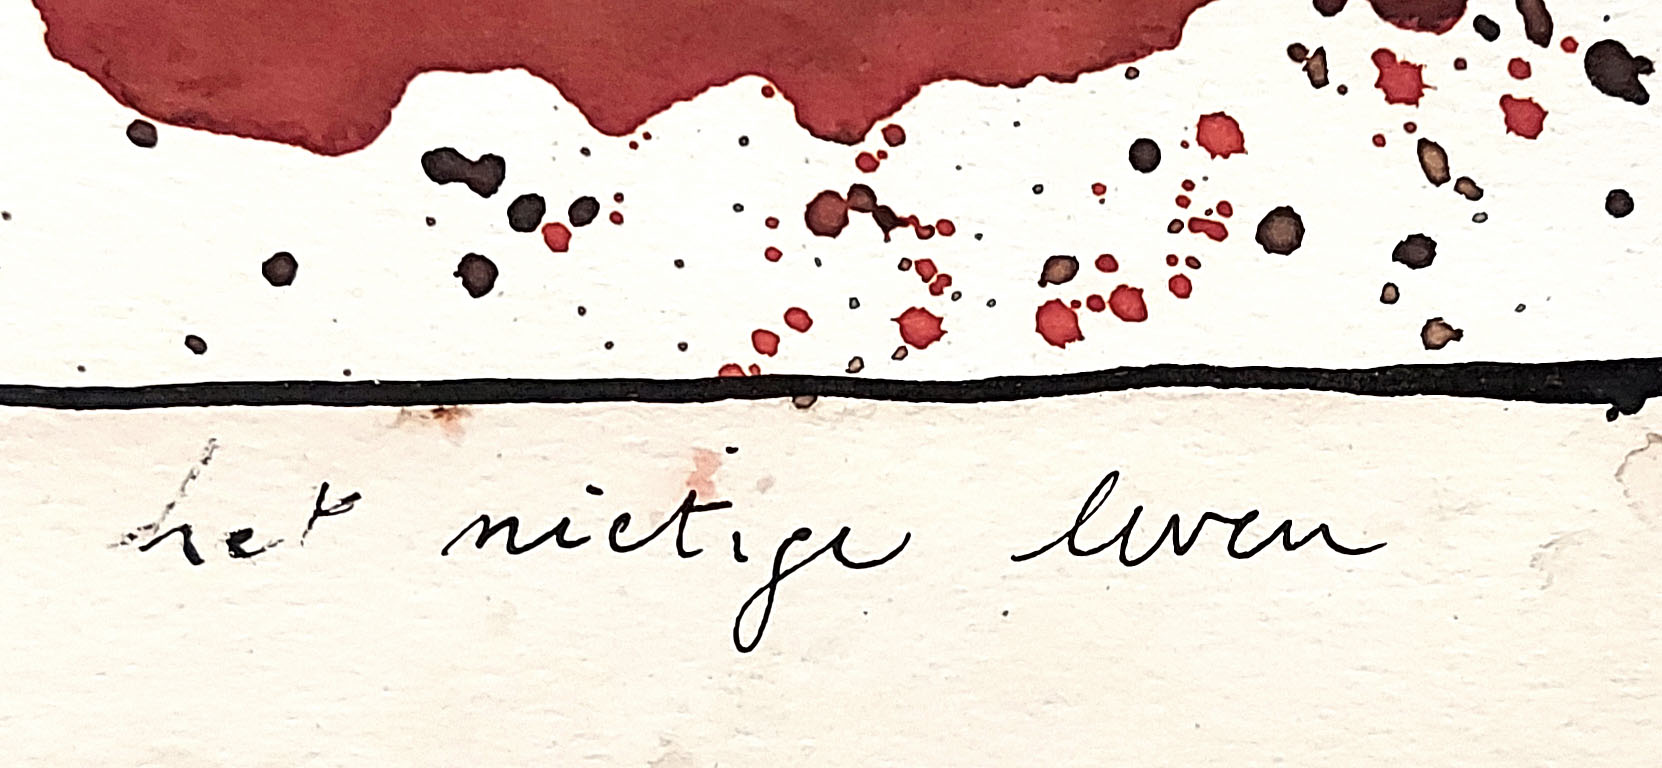 het nietige leven